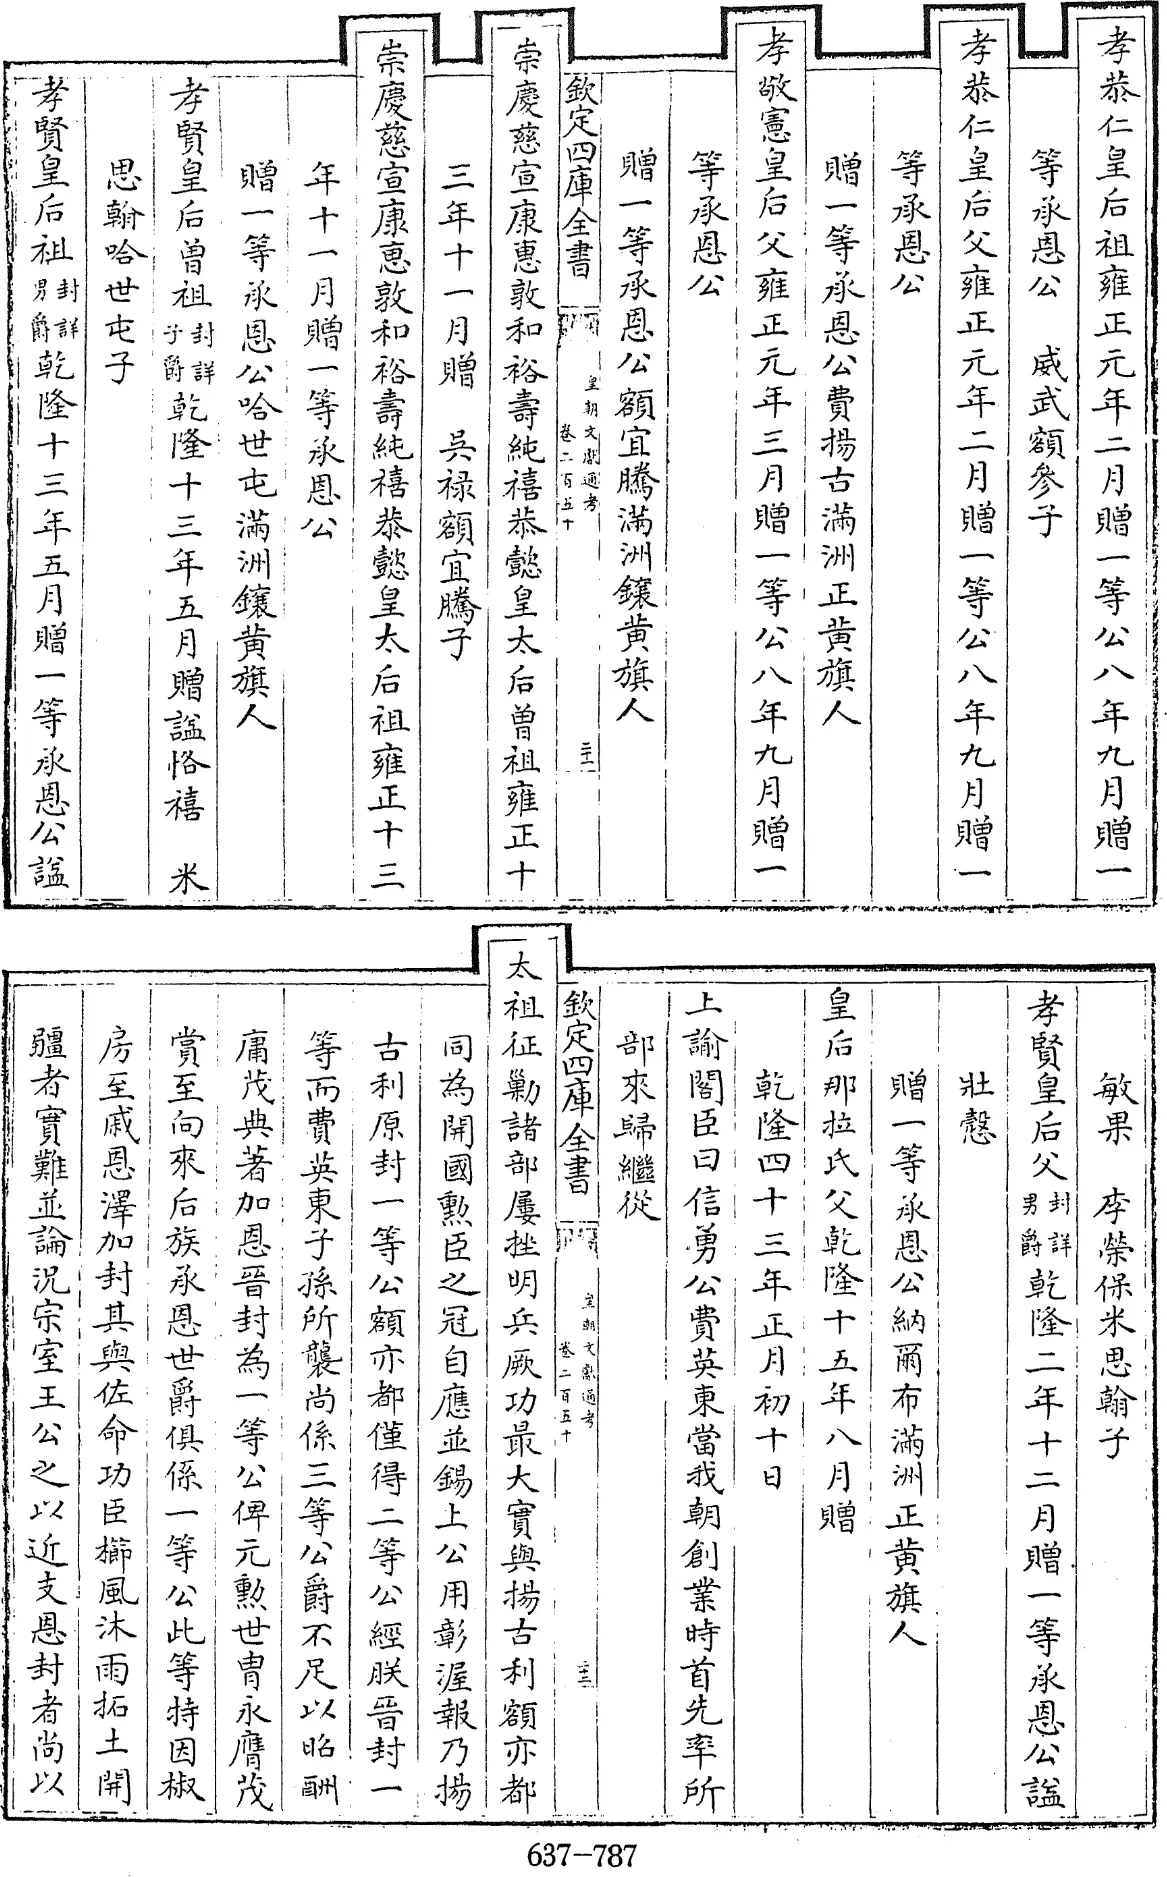 孝恭仁皇后祖雍正元年二月贈一等公八年九月贈一
等承恩公　威武額參子
孝恭仁皇后父雍正元年二月贈一等公八年九月贈一
等承恩公
贈一等承恩公費揚古滿洲正黄旗人
孝敬憲皇后父雍正元年三月贈一等公八年九月贈一
等承恩公
贈一等承恩公額宜騰滿洲鑲黄旗人
欽定四庫全書
皇朝文獻通考
卷二百五十
三十一
崇慶慈宣康惠敦和裕壽純禧恭懿皇太后曽祖雍正十
三年十一月贈　吳禄額宜騰子
崇慶慈宣康惠敦和裕壽純禧恭懿皇太后祖雍正十三
年十一月贈一等承恩公
贈一等承恩公哈世屯滿洲鑲黄旗人
孝賢皇后曽祖封詳子爵乾隆十三年五月贈諡恪禧　米
思翰哈世屯子
孝賢皇后祖封詳男爵乾隆十三年五月贈一等承恩公諡
敏果　李榮保米思翰子
孝賢皇后父封詳男爵乾隆二年十二月贈一等承恩公諡
壯慤
贈一等承恩公納爾布滿洲正黄旗人
皇后那拉氏父乾隆十五年八月贈
乾隆四十三年正月初十日
上諭閣臣曰信勇公費英東當我朝創業時首先率所
部來歸繼從
欽定四庫全書
皇朝文獻通考
卷二百五十
三十二
太祖征勦諸部屢挫明兵厥功最大實與揚古利額亦都
同為開國勲臣之冠自應並錫上公用彰渥報乃揚
古利原封一等公額亦都僅得二等公經朕晉封一
等而費英東子孫所襲尚係三等公爵不足以昭酬
庸茂典著加恩晉封為一等公俾元勲世胄永膺茂
賞至向來后族承恩世爵俱係一等公此等特因椒
房至戚恩澤加封其與佐命功臣櫛風沐雨拓土開
疆者實難並論況宗室王公之以近支恩封者尚以
637-787